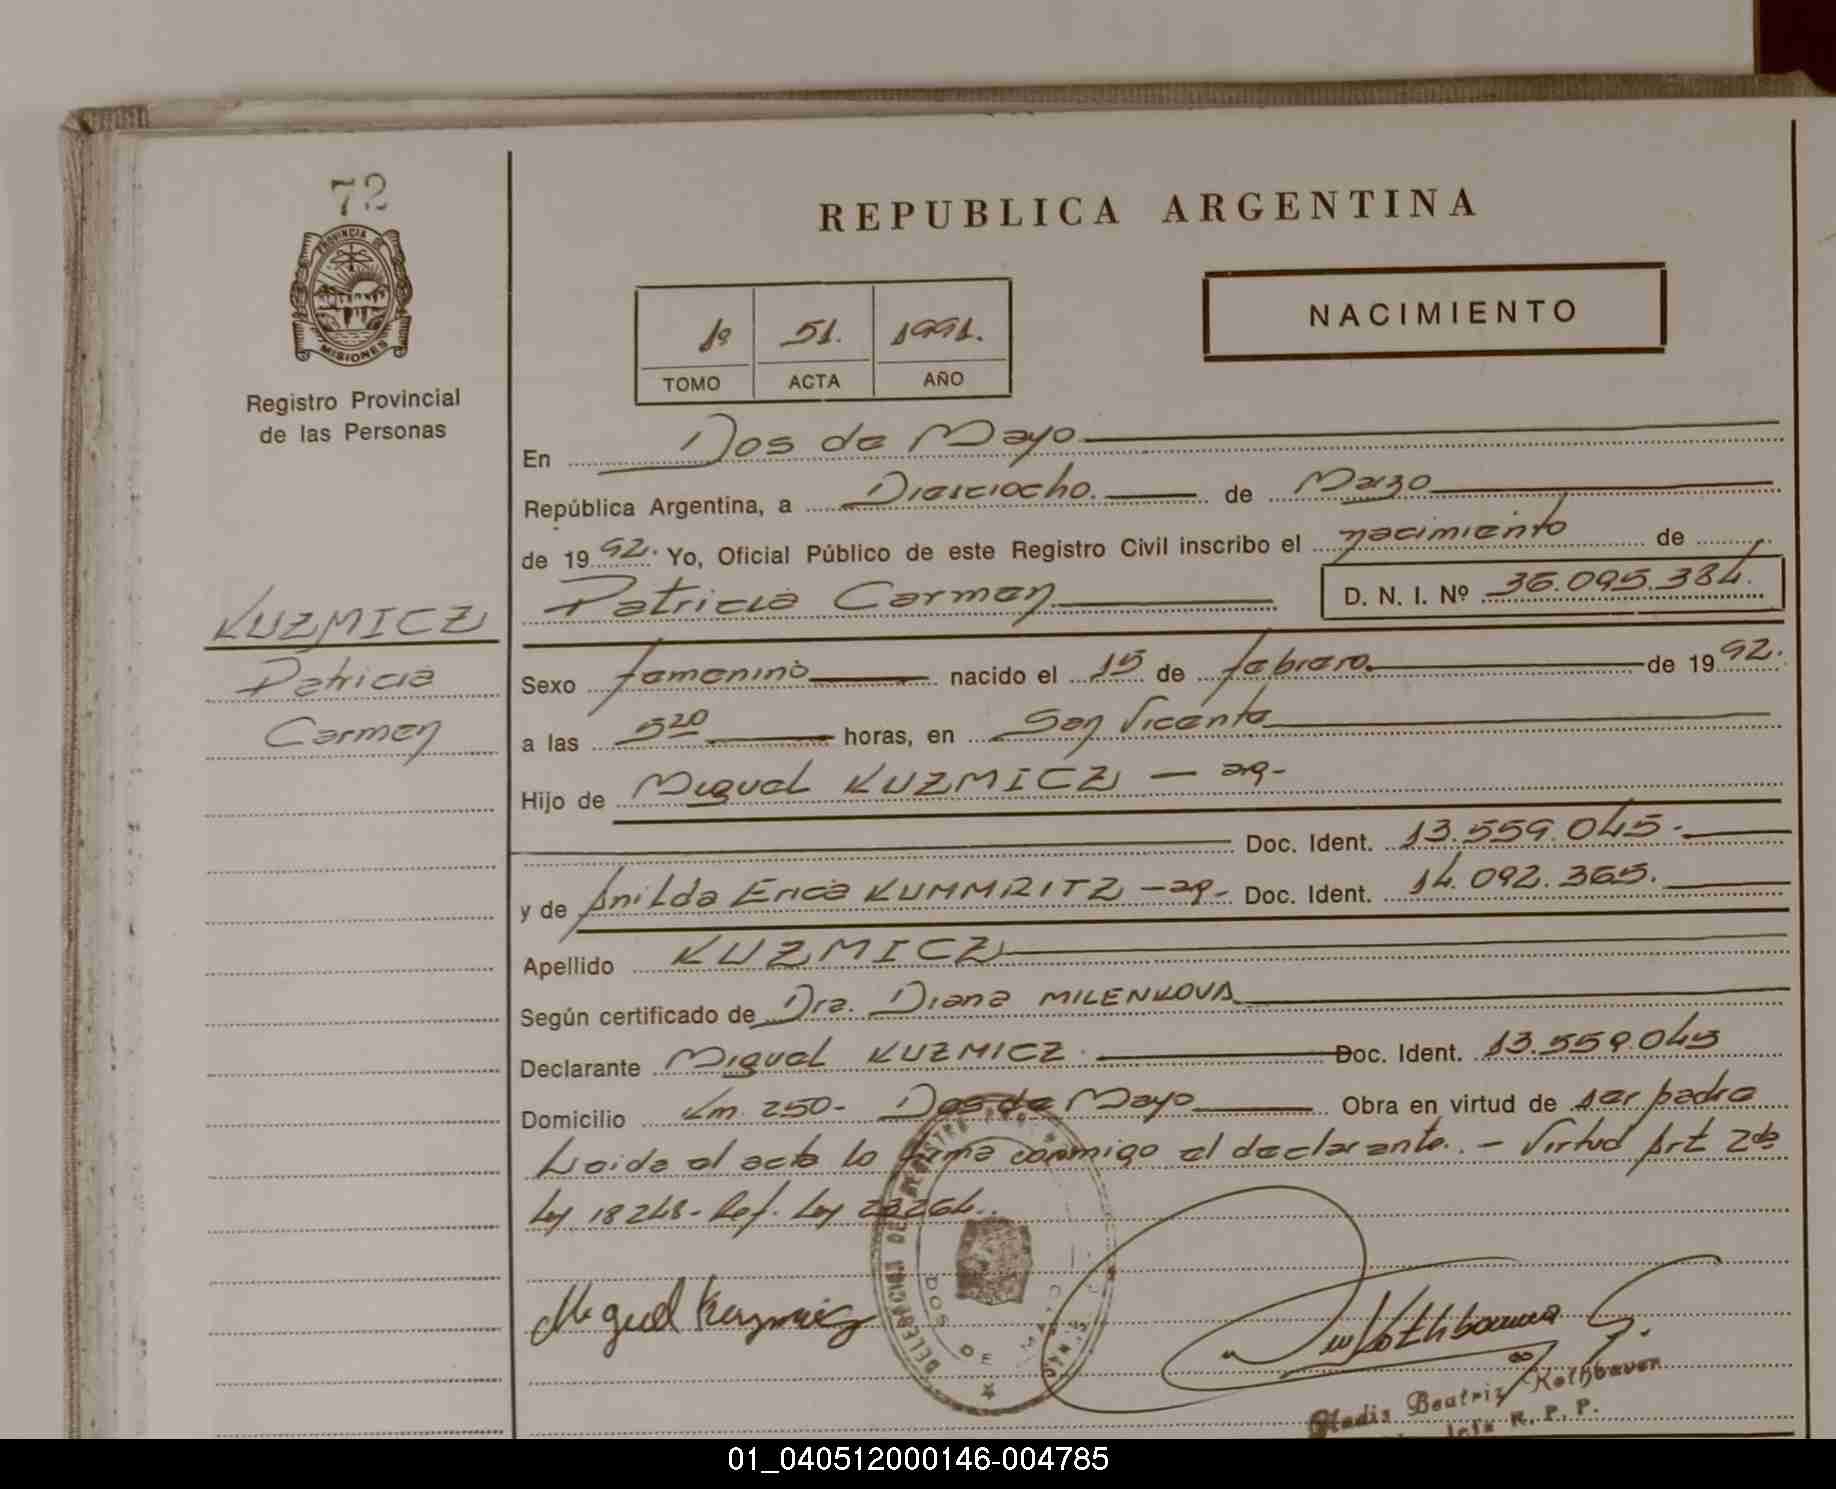 72
PROVINCIA DE
MISIONES
Registro Provincial
de las Personas
KUZMICZ
Patricia
Carmen
REPUBLICA ARGENTINA
1º 51. 1991.
TOMO ACTA AÑO
NACIMIENTO
En Dos de Mayo
República Argentina, a Diesciocho. de Marzo
de 19 92. Yo, Oficial Público de este Registro Civil inscribo el nacimiento de
Patricia Carmen D. N. I. Nº 36.095.384.
Sexo femenino nacido el 15 de febrero de 19 92.
a las 5 20 horas, en San Vicente
Hijo de Miguel KUZMICZ — arg-
Doc. Ident. 13.559.045.-
y de Anilda Erica KUMMRITZ - arg- Doc. Ident. 14.092.365.
Apellido KUZMICZ
Según certificado de Dra. Diana MILENKOVA
Declarante Miguel KUZMICZ. Doc. Ident. 13.559.045
Domicilio Km. 250- Dos de Mayo Obra en virtud de ser padre
Leida el acta lo firma conmigo el declarante. - Virtud Art 2do
Ley 18248- Ref. Ley 23264..
Miguel Kuzmicz
DELEGACION DEL REGISTRO
DOS DE MAYO
Gladis Beatriz Kothbauer
Jefe R. P. P.
01_040512000146-004785